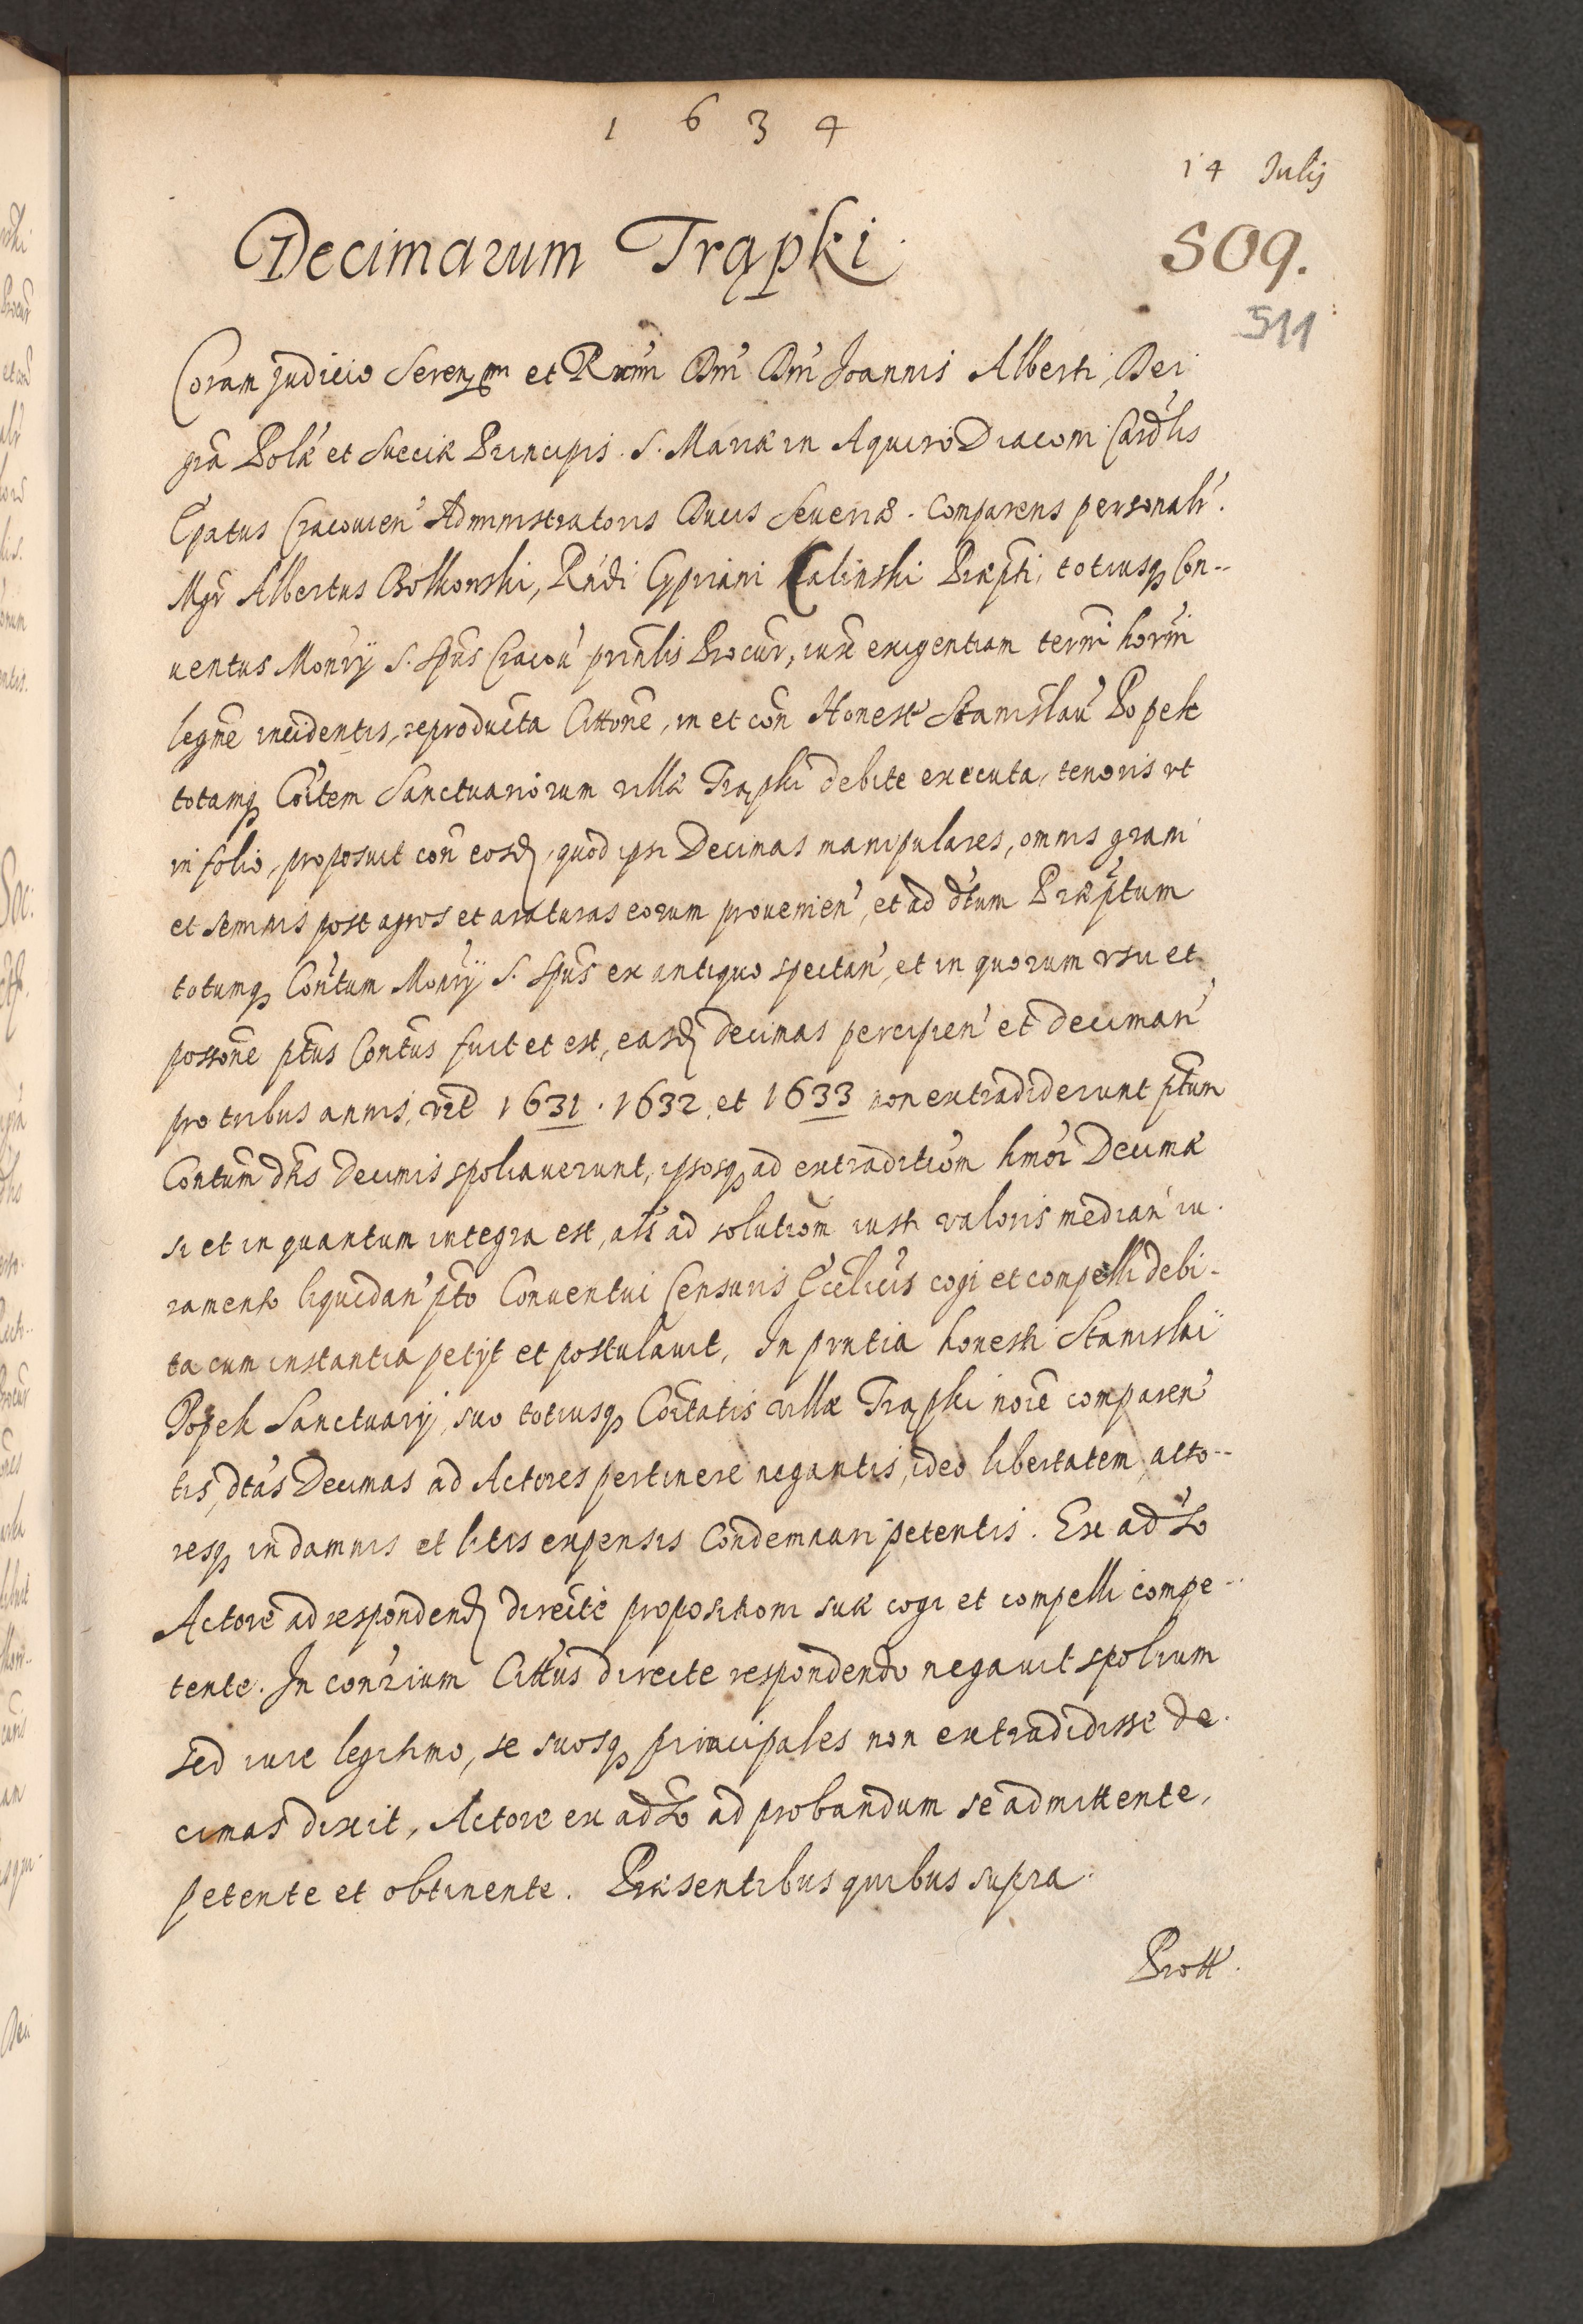 1 6 3 4
14 Julij
Decimarum Trąpki
509.
511
Coram Judicio Serenmi et Rmi Dni Dni Joannis Alberti, Dei
gra Polæ et Sueciæ Principis S. Mariæ in Aquiro Diaconi Cardlis
Epatus Cracovien Administratoris Ducis Severiæ. Comparens personalr.
Mgr Albertus Bolkowski, Rndi Cypriani Calinski Præpti, totiusq Con--
uentus Monrij S. Spus Cracou prinlis Procur, iuxe exigentiam termi horni
legme incidentis, reproducta Cittone, in et con Honest Stanislau Popek
totamq Coitem Sanctuariorum villæ Trąpki debite executa, tenoris vt
in folio, proposuit con eosd, quod ipsi Decimas manipulares, omnis grani
et seminis post agros et araturas eorum prouenien, et ad dtum Præptum
totumq Contum Monrij S. Spus ex antiquo spectan, et in quorum vsu et
possone ptus Contus fuit et est, easd decimas percipien et deciman
pro tribus annis, vid 1631. 1632, et 1633 non extradiderunt ptum
Contum dtis Decimis spoliauerunt, ipsosq ad extraditiom hmoi Decimæ
si et in quantum integra est, als ad solutiom iusti valoris median iu.
ramento liquidan pto Conuentui Censuris Ecclicis cogi et compelli debi-
ta cum instantia petijt et postulauit, In prntia honesti Stanislai
Popek Sanctuarij, suo totiusq Coitatis villæ Trąpki noie comparen
tis, dtas Decimas ad Actores pertinere negantis, ideo libertatem, acto--
resq in damnis et litis expensis Condemnari petentis. Ex adso
Actore ad respondend directe propositioni suæ cogi et compelli compe--
tente. In conrium Cittus directe respondendo negauit spolium
sed iure legitimo, se suosq principales non extradidisse de.
cimas dixit, Actore ex adso ad probandum se admittente,
petente et obtinente. Præsentibus quibus supra.
Prott.